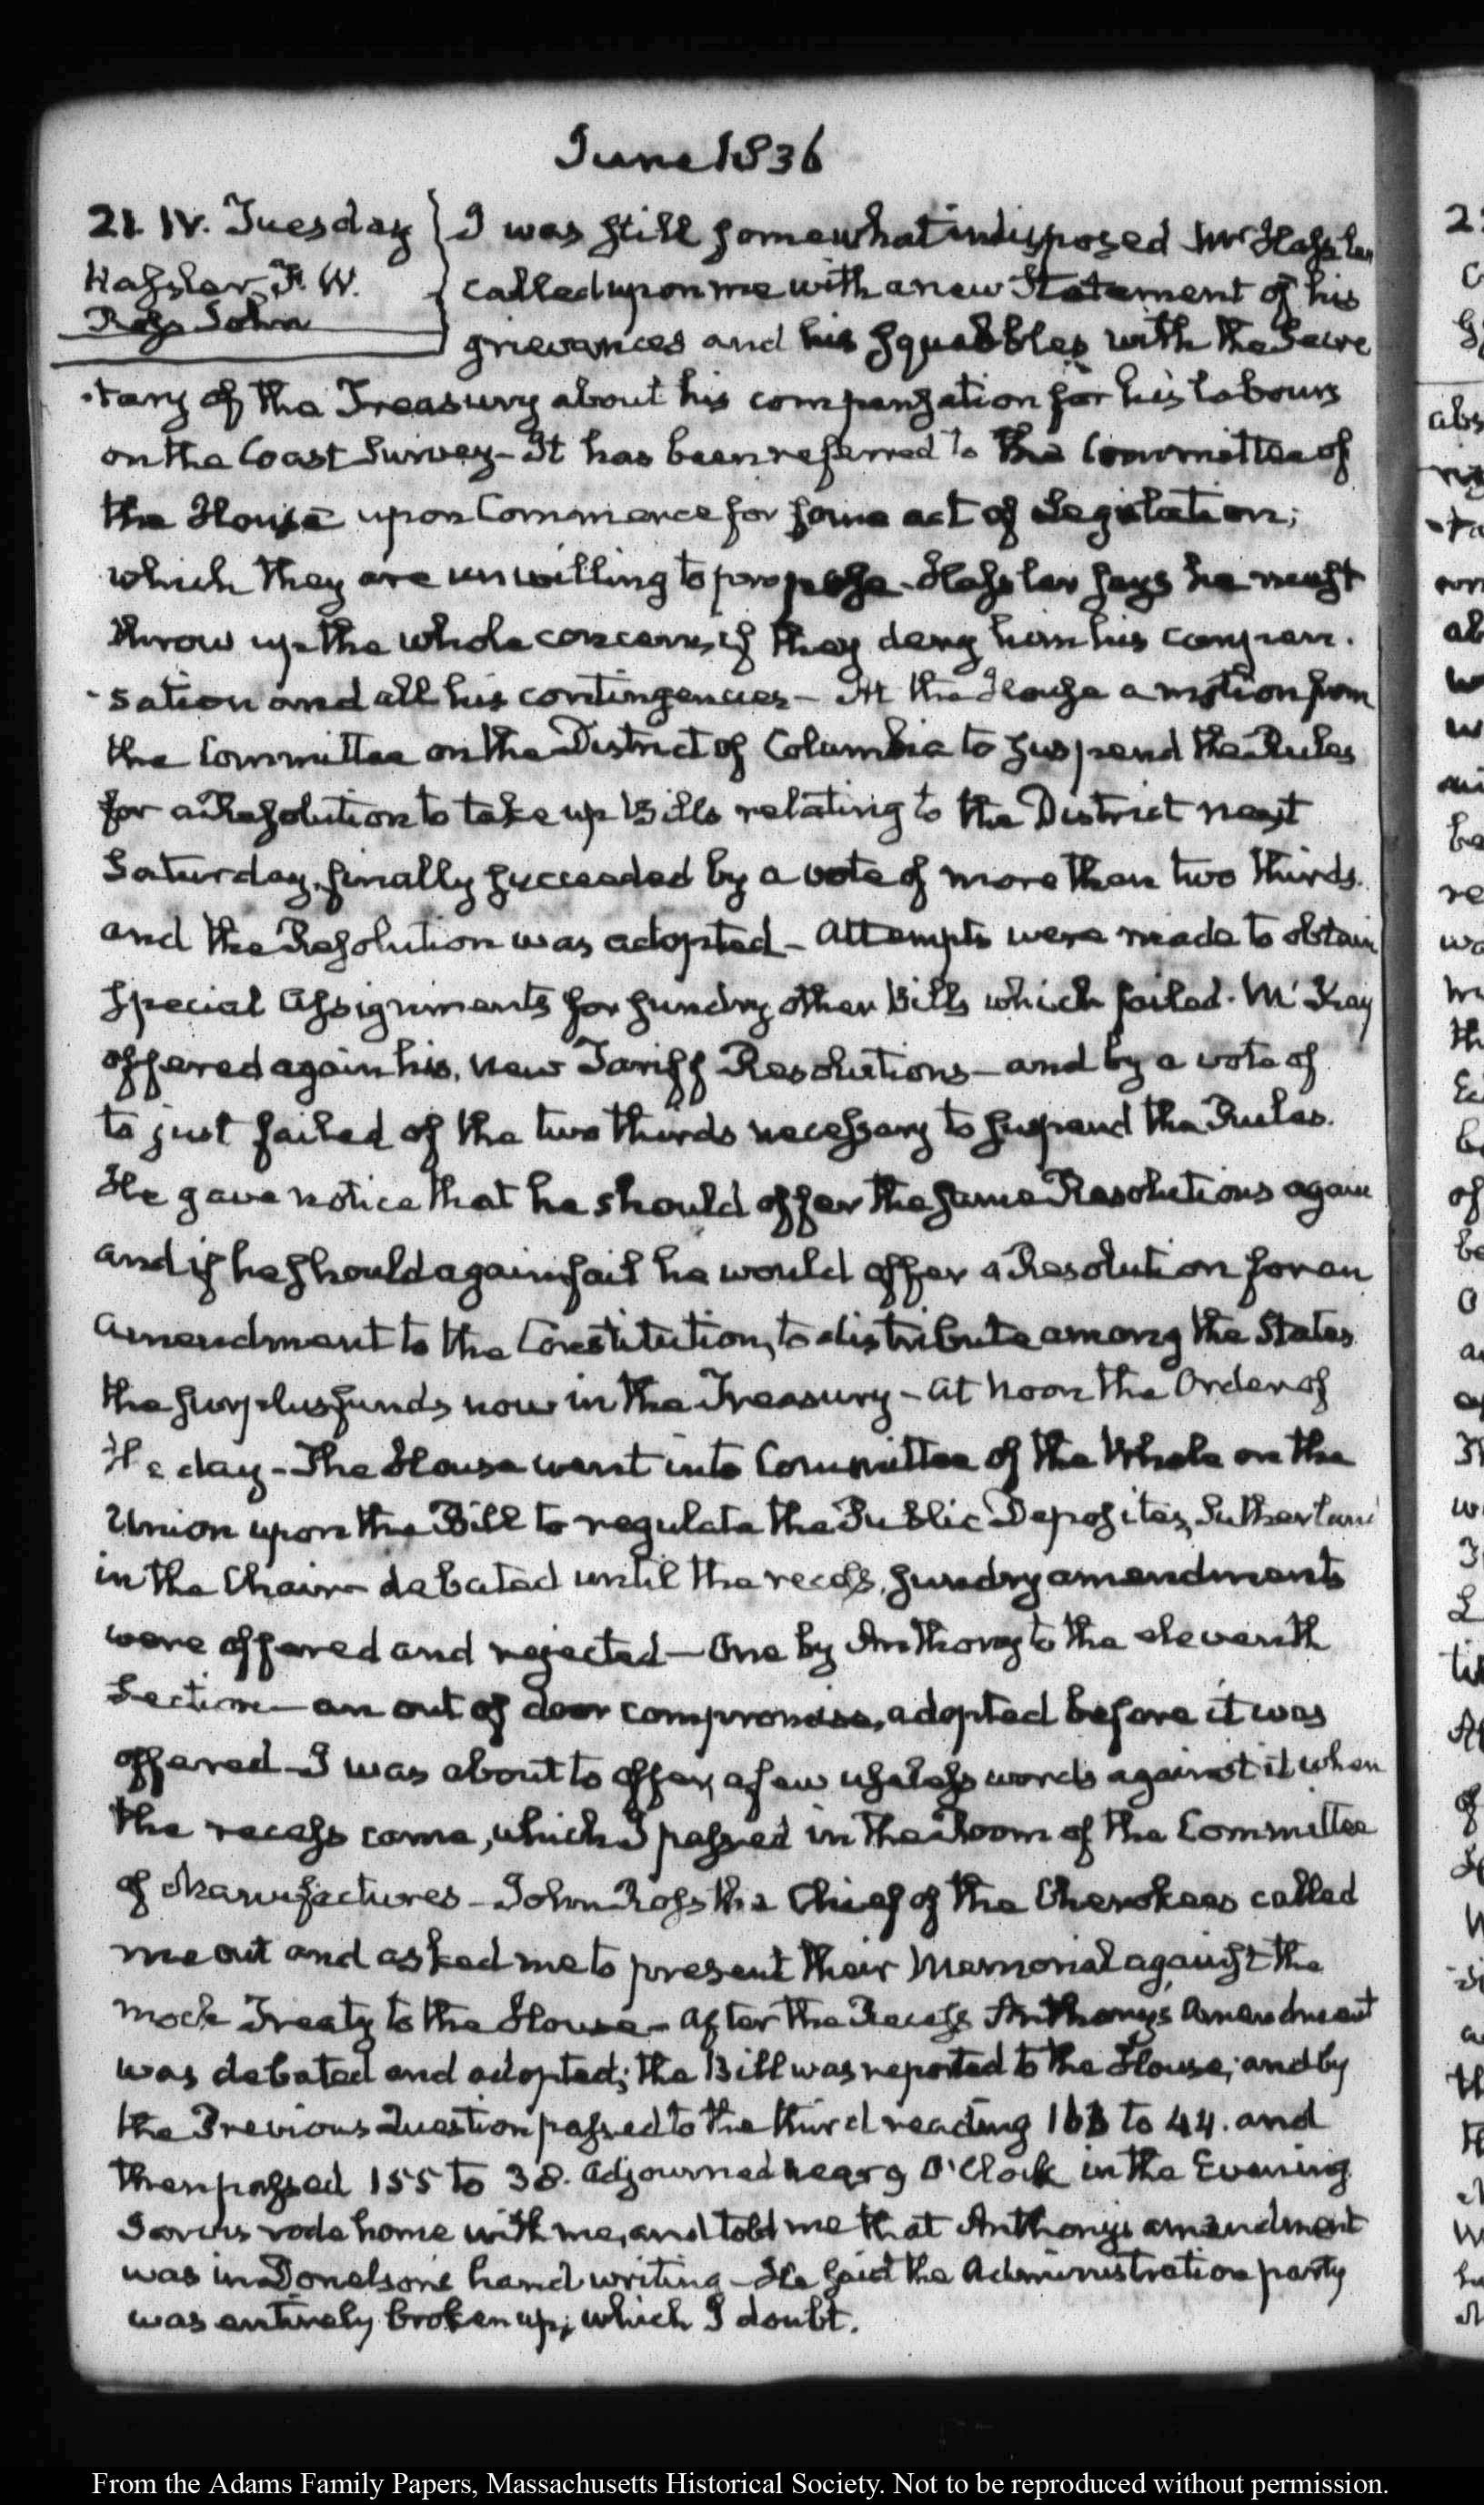 June 1836
21. IV. Tuesday
Hassler, F. W.
Ross John
I was still somewhat indisposed Mr Hassler
called upon me with a new Statement of his
grievances and his squabbles with the Secre
-tary of the Treasury about his compensation for his labours
on the Coast Survey – It has been referred to the Committee of
the House upon Commerce for some act of Legislation;
which they are unwilling to propose – Hassler says he must
throw up the whole concern, if they deny him his compen-
-sation and all his contingencies – At the House a motion from
the Committee on the District of Columbia to suspend the Rules
for a Resolution to take up Bills relating to the District next
Saturday, finally succeeded by a vote of more than two thirds.
and the Resolution was adopted – Attempts were made to obtain
special Assignments for sundry other Bills which failed. McKay
offered again his, new Tariff Resolutions – and by a vote of
to just failed of the two thirds necessary to suspend the Rules.
He gave notice that he should offer the same Resolutions again
and if he should again fail he would offer a Resolution for an
amendment to the Constitution, to distribute among the States
the surplus funds now in the Treasury – At Noon the Order of
the day – The House went into Committee of the Whole on the
Union upon the Bill to regulate the Public Deposites, Sutherland
in the Chair – debated until the recess, sundry amendments
were offered and rejected – One by Anthony to the eleventh
Section – an out of door compromise, adopted before it was
offered – I was about to offer, a few useless words against it when
the recess came, which I passed in the Room of the Committee
of Manufactures – John Ross the Chief of the Cherokees called
me out and asked me to present their Memorial against the
mock Treaty to the House – After the Recess Anthony's Amendment
was debated and adopted; the Bill was reported to the House; and by
the Previous Question passed to the third reading 163 to 44. and
then passed 155 to 38. Adjourned near 9 O'Clock in the Evening
Jarvis rode home with me, and told me that Anthony's amendment
was in Donelson's hand writing – He said the Administration party
was entirely broken up; which I doubt.
From the Adams Family Papers, Massachusetts Historical Society. Not to be reproduced without permission.